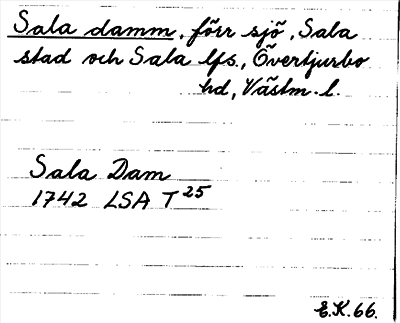 Sala damm, förr sjö, Sala
stad och Sala lfs., Övertjurbo
hd, Västm. l.
Sala Dam
1742 LSA T 25
E.K. 66.